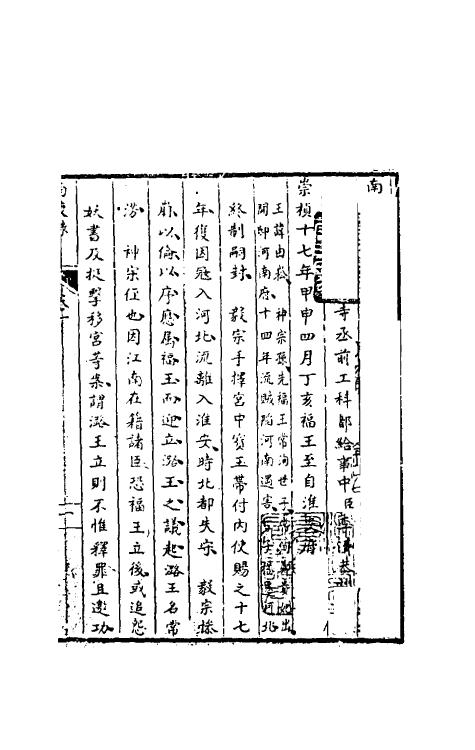 南
寺丞前工科都給事中臣李清恭
崇禎十七年甲申四月丁亥福王至自淮
王諱由崧神宗孫先福王常洵世子
開邸河南府十四年流賊陷河南遇害
終制嗣封　毅宗手擇宮中寶玉帶付內使賜之十七
年復因寇入河北流離入淮安時北都失守　毅宗慘
崩以倫以序應屬福王而迎立潞王之議起潞王名常
淓　神宗侄也因江南在籍諸臣恐福王立後或追怨
妖書及挺擊移宮等案謂潞王立則不惟釋罪且邀功